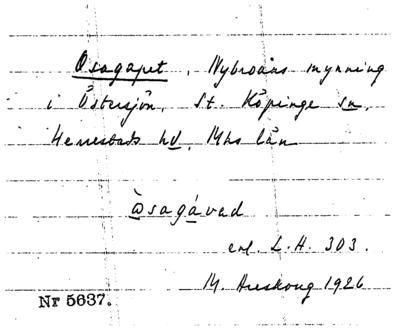 Osagapet, Nybroåns mynning
i Östersjön, St. Köpinge sn,
Herrestads hd, Mhs län
àsagávad
enl. L.H. 303.
M. Areskoug 1926
Nr 5637.